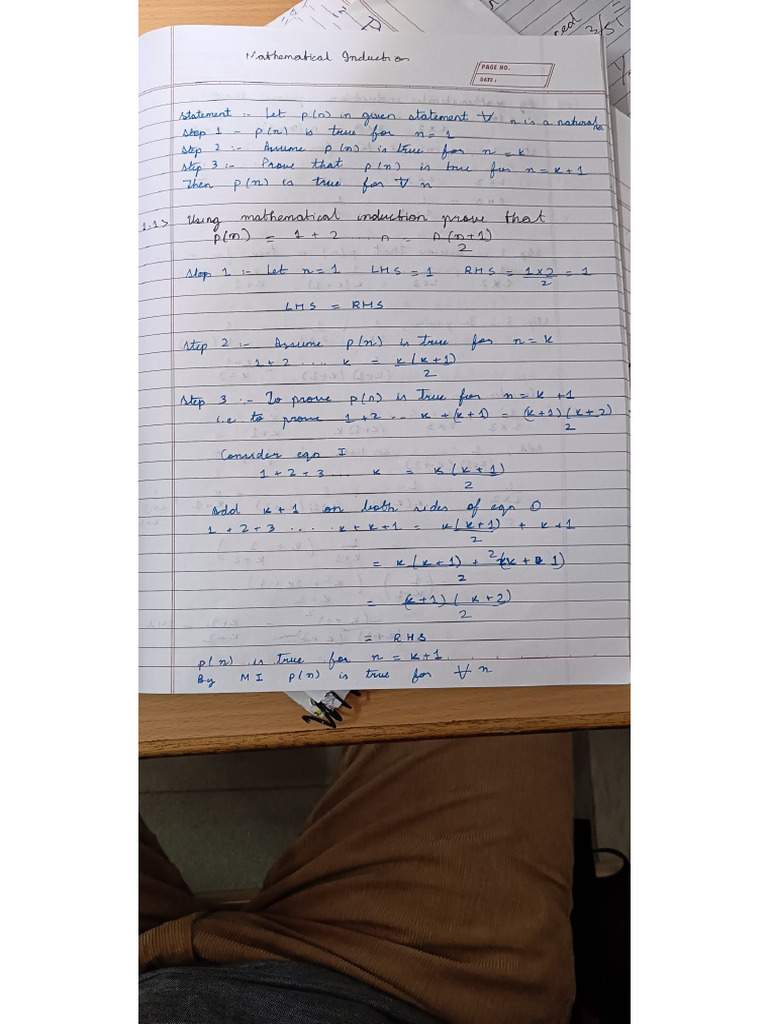 Mathematical Induction
PAGE NO.
DATE :
Statement :- Let p(n) in given statement ∀ n is a natural no
Step 1 - p(n) is true for n = 1
Step 2 :- Assume p(n) is true for n = k
Step 3 :- Prove that p(n) is true for n = k+1
Then p(n) is true for ∀ n
1.1> Using mathematical induction prove that
p(n) = 1 + 2 ... n = n(n+1)/2
Step 1 :- Let n=1 LHS = 1 RHS = 1×2/2 = 1
LHS = RHS
Step 2 :- Assume p(n) is true for n = k
1+2 .... k = k(k+1)/2
Step 3 :- To prove p(n) is true for n = k +1
i.e to prove 1+2 ... k +(k+1) = (k+1)(k+2)/2
Consider eqn I
1 + 2 + 3 .... k = k(k+1)/2
Add k+1 on both sides of eqn
1 + 2 + 3 .... k + k+1 = k(k+1)/2 + k+1
= k(k+1) + 2(k+1)/2
= (k+1)(k+2)/2
= RHS
p(n) is true for n = k+1.
By MI p(n) is true for ∀ n